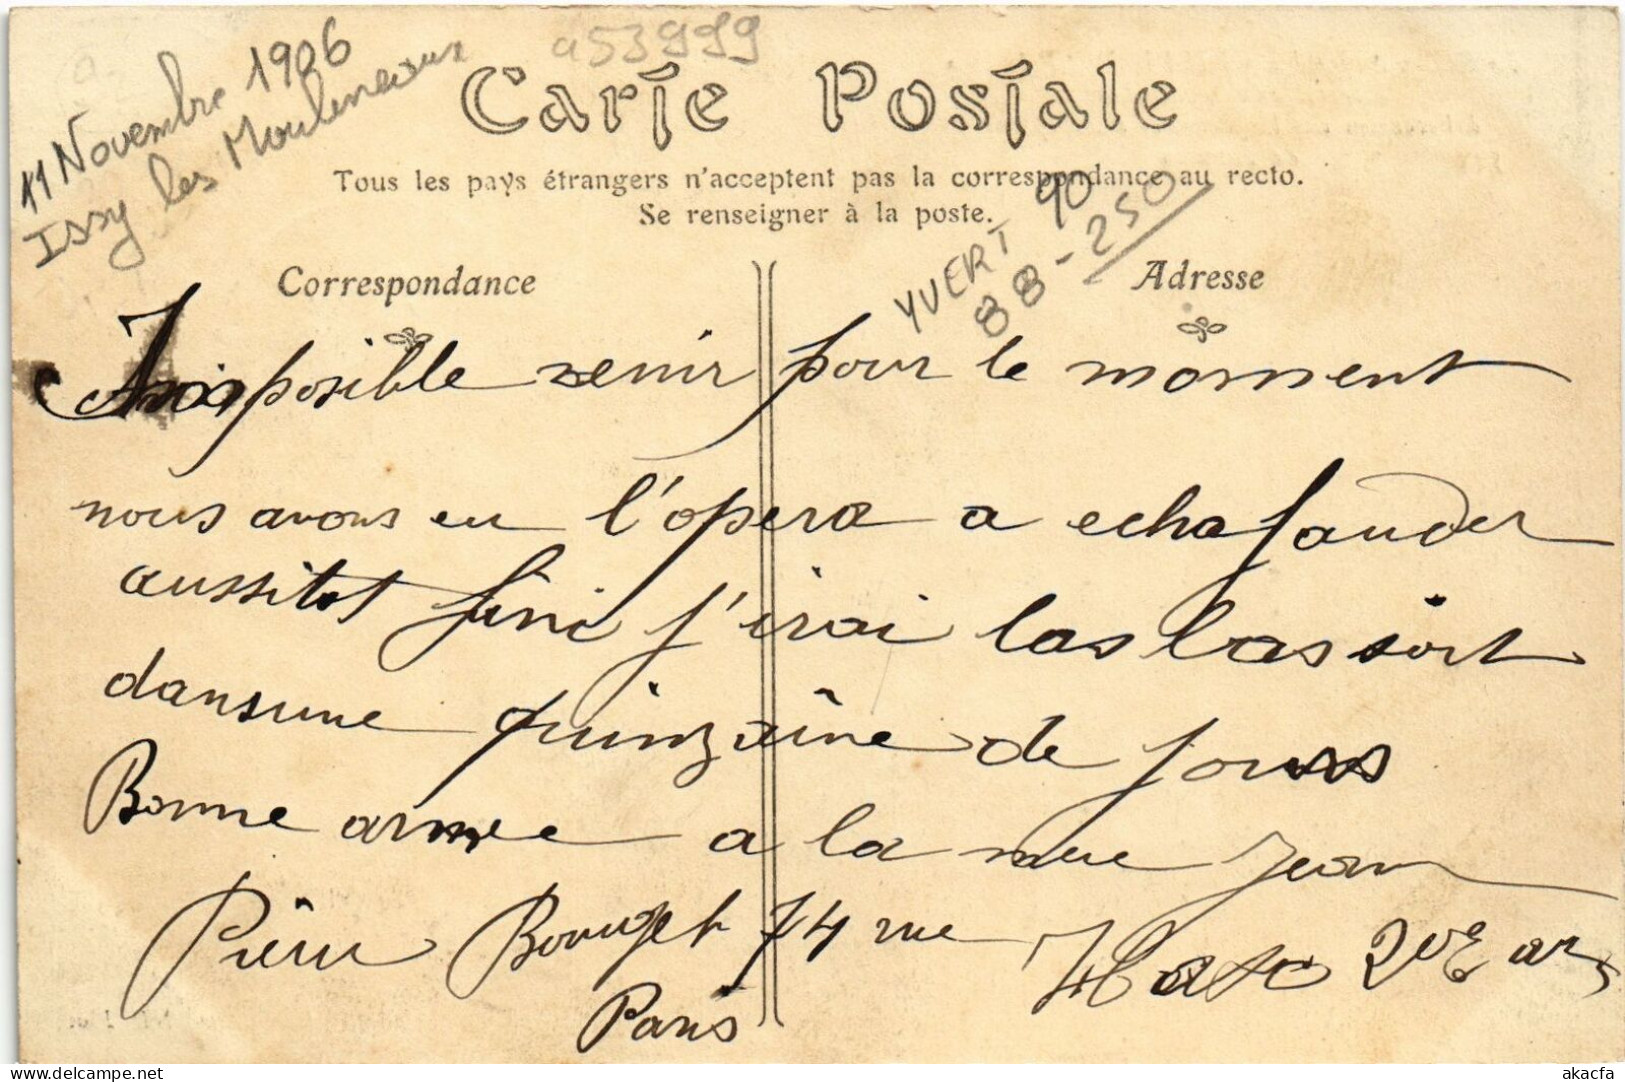 a53999
11 Novembre 1906
Issy les Moulineaux
Carte Postale
Tous les pays étrangers n'acceptent pas la correspondance au recto.
Se renseigner à la poste.
YVERT 90
88-250
Correspondance
Adresse
Imposible venir pour le moment
nous avons eu l'opera a echafauder
aussitot fini j'irai
dans une quinzaine de jours
Bonne année a la mere Jean
Bourget 74 rue 20e ar
Paris
delcampe.net
akacfa